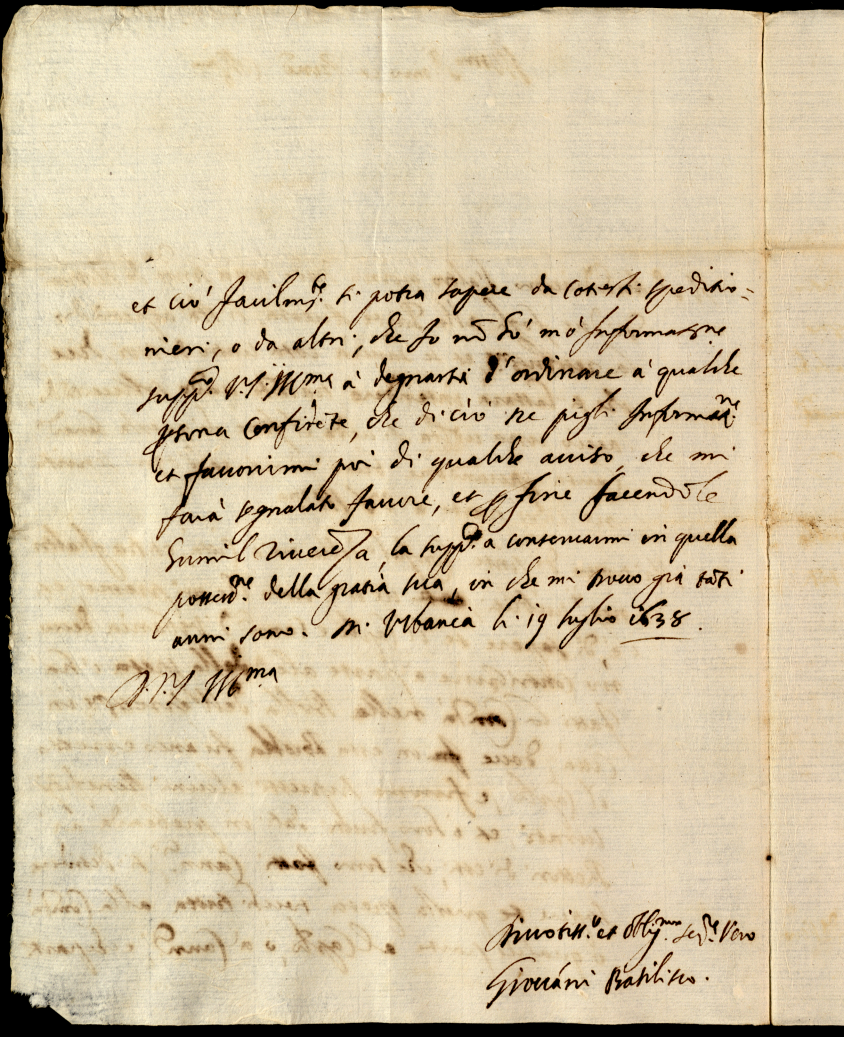 et ciò facilm.te si potrà sapere da cotesti speditio=
nieri, o da altri, che Io nõ sò mò Informarne
supp.co V.S. Ill.ma à degnarsi d'ordinare à qualche
p̱sona confidẽte, che di ciò ne pigli Informa.ne
et favorirmi poi di qualche aviso, che mi
farà segnalato favore, et p̱ fine facendole
humil riverẽza, la supp.co a conservarmi in quella
possess.ne della gratia sua, in che mi trovo già tãti
anni sono. Di Urbania li 19 luglio 1638.
D.V.S. Ill.ma
Divotiss.o et oblig.mo se.re Vero
Giovãni Basilisco.